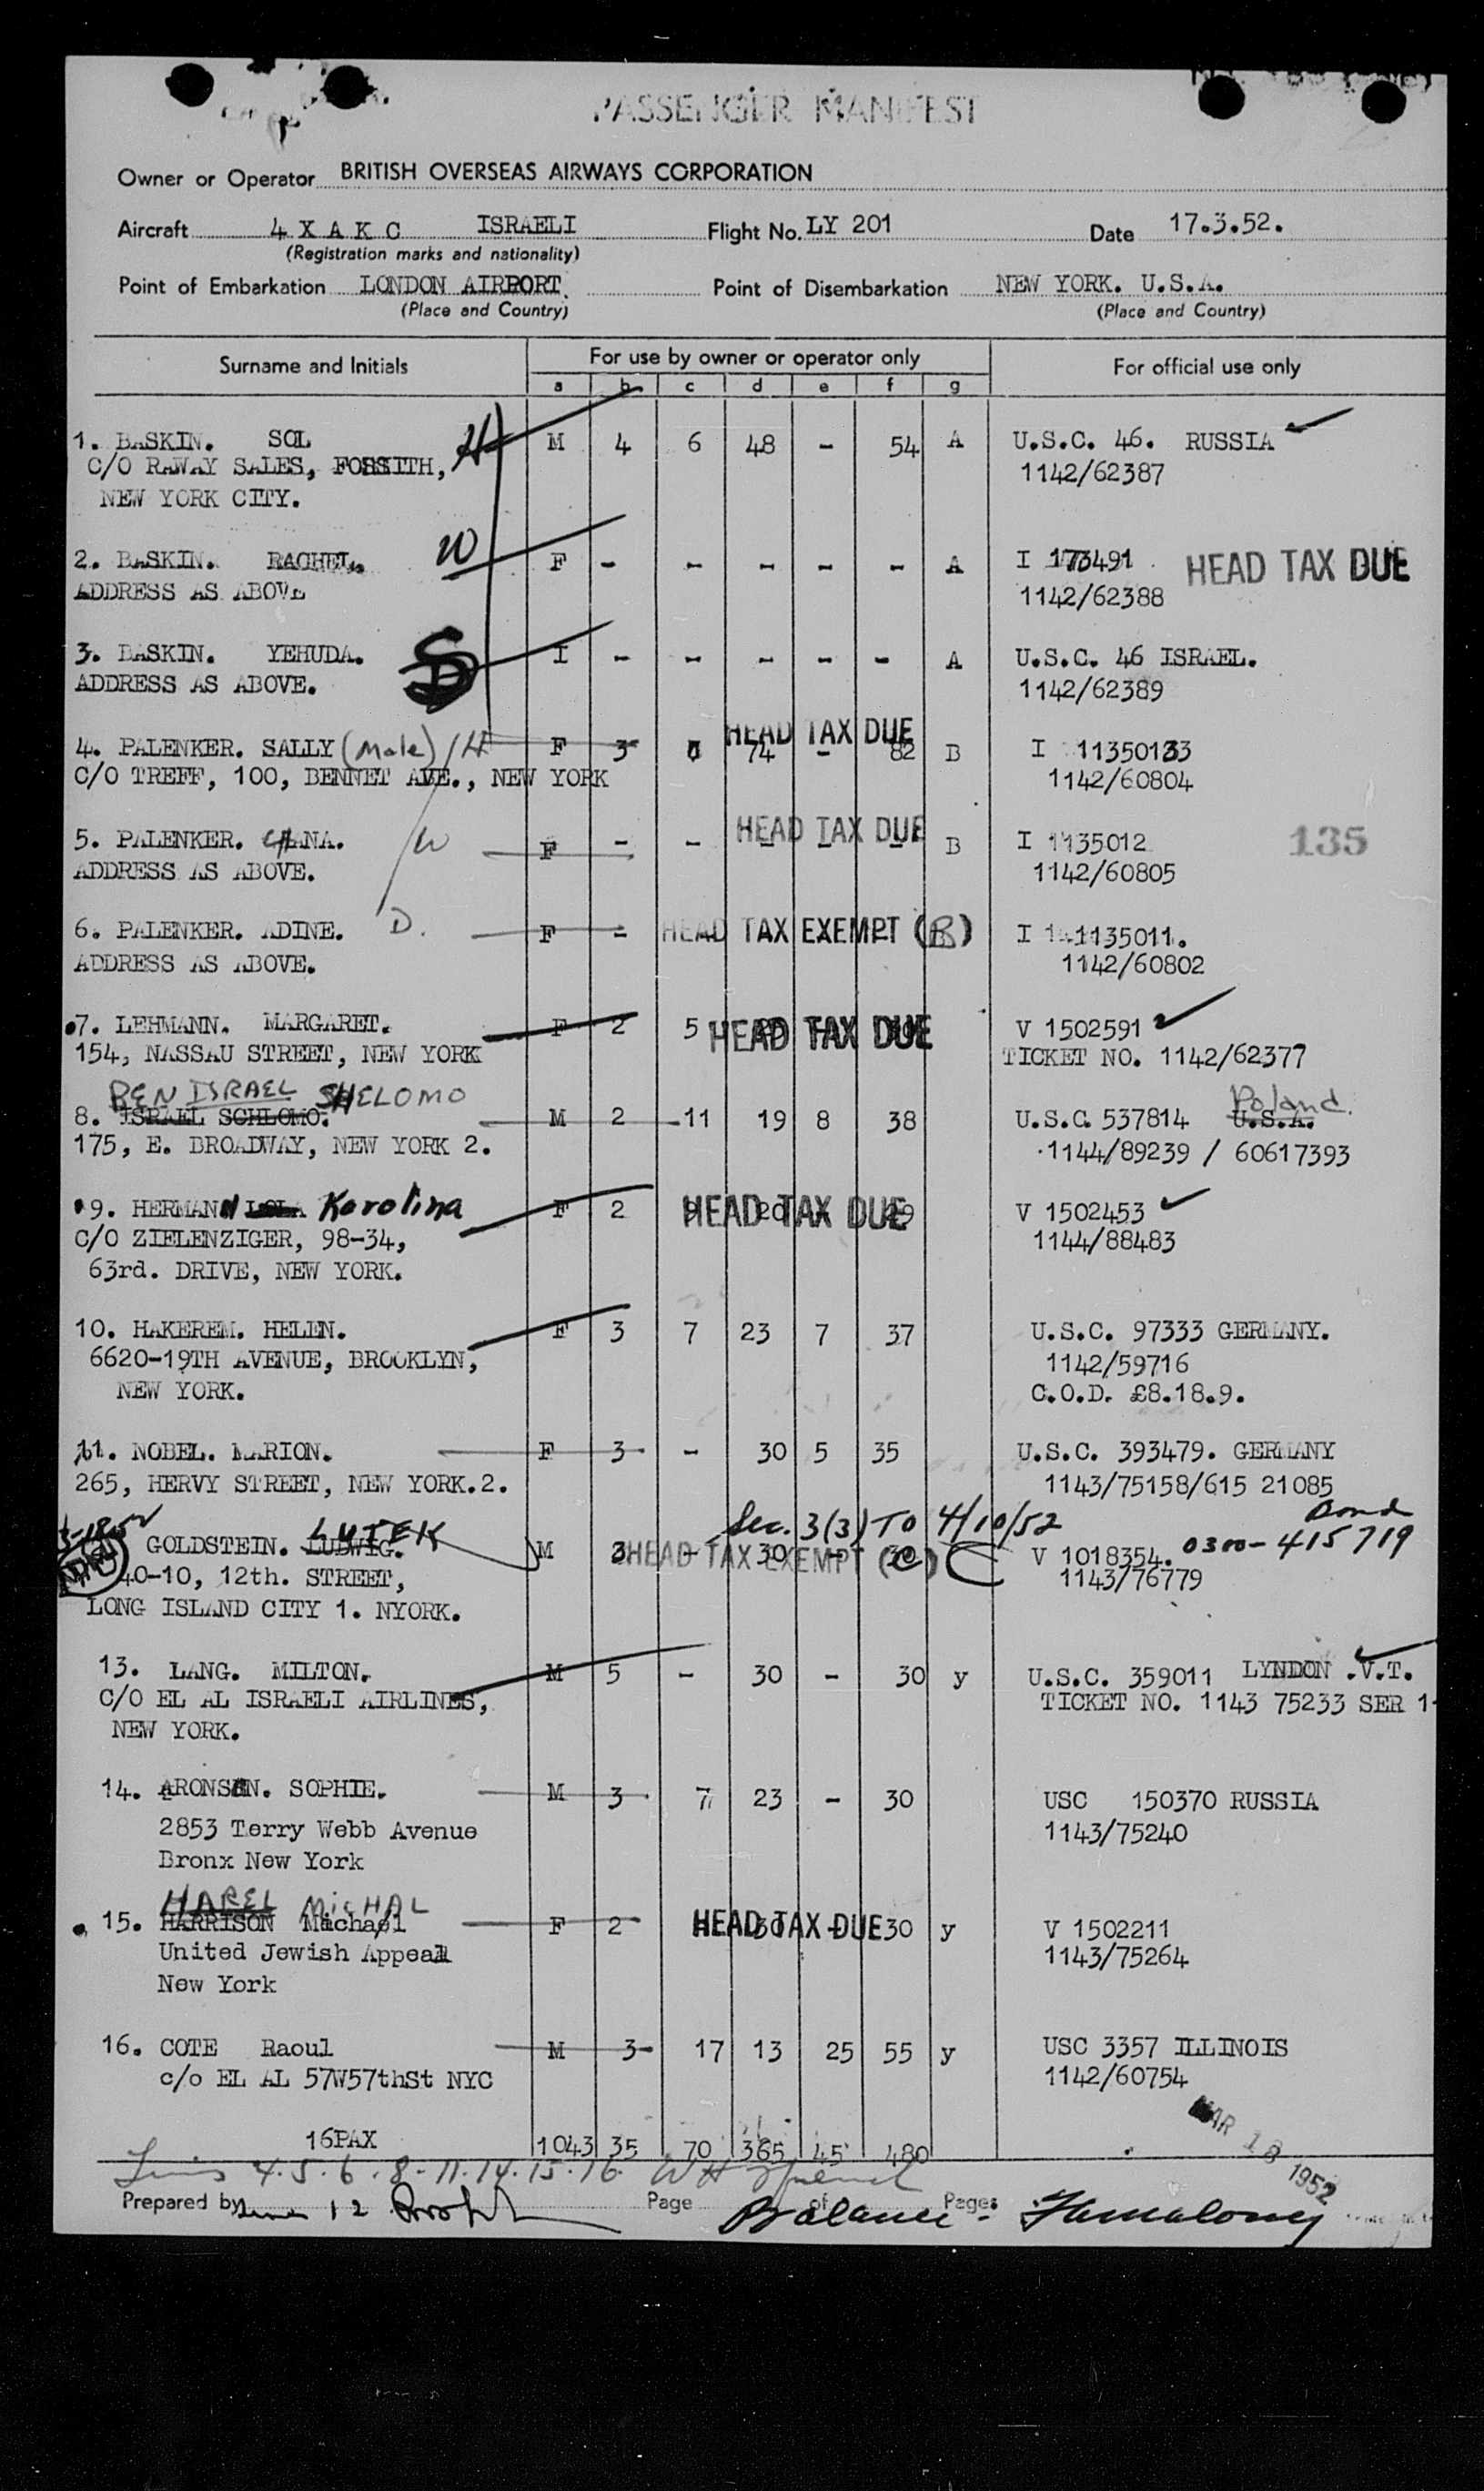 PASSENGER MANIFEST
Owner or Operator BRITISH OVERSEAS AIRWAYS CORPORATION
Aircraft 4 X A K C ISRAELI Flight No. LY 201 Date 17.3.52.
(Registration marks and nationality)
Point of Embarkation LONDON AIRPORT. Point of Disembarkation NEW YORK. U.S.A.
(Place and Country) (Place and Country)
Surname and Initials For use by owner or operator only For official use only
a b c d e f g
1. BASKIN. SOL H M 4 6 48 - 54 A U.S.C. 46. RUSSIA
C/O RAWAY SALES, FORSITH, 1142/62387
NEW YORK CITY.
2. BASKIN. RACHEL. W F - - - - - A I 173491 HEAD TAX DUE
ADDRESS AS ABOVE 1142/62388
3. BASKIN. YEHUDA. S I - - - - - A U.S.C. 46 ISRAEL.
ADDRESS AS ABOVE. 1142/62389
HEAD TAX DUE
4. PALENKER. SALLY (Male) H F 3 74 - 82 B I 11350133
C/O TREFF, 100, BENNET AVE., NEW YORK 1142/60804
5. PALENKER. CHANA. W F - - HEAD TAX DUE B I 1135012 135
ADDRESS AS ABOVE. 1142/60805
6. PALENKER. ADINE. D. F - HEAD TAX EXEMPT (B) I 1135011.
ADDRESS AS ABOVE. 1142/60802
7. LEHMANN. MARGARET. F 2 5 HEAD TAX DUE V 1502591
154, NASSAU STREET, NEW YORK TICKET NO. 1142/62377
BEN ISRAEL SHELOMO Poland.
8. ISRAEL SCHLOMO. M 2 -11 19 8 38 U.S.C. 537814 U.S.A.
175, E. BROADWAY, NEW YORK 2. 1144/89239 / 60617393
9. HERMANN LOLA Karolina F 2 9 HEAD TAX DUE 20 29 V 1502453
C/O ZIELENZIGER, 98-34, 1144/88483
63rd. DRIVE, NEW YORK.
10. HAKEREM. HELEN. F 3 7 23 7 37 U.S.C. 97333 GERMANY.
6620-19TH AVENUE, BROOKLYN, 1142/59716
NEW YORK. C.O.D. £8.18.9.
11. NOBEL. MARION. F 3 - 30 5 35 U.S.C. 393479. GERMANY
265, HERVY STREET, NEW YORK.2. 1143/75158/615 21085
Sec. 3(3) TO 4/10/52 Bond
LUTEK 0300-415719
GOLDSTEIN. LUDWIG. M 3 HEAD TAX EXEMPT (C) - 30 - V 1018354.
40-10, 12th. STREET, 1143/76779
LONG ISLAND CITY 1. NYORK.
13. LANG. MILTON. M 5 - 30 - 30 y U.S.C. 359011 LYNDON .V.T.
C/O EL AL ISRAELI AIRLINES, TICKET NO. 1143 75233 SER 1
NEW YORK.
14. ARONSON. SOPHIE. M 3 7 23 - 30 USC 150370 RUSSIA
2853 Terry Webb Avenue 1143/75240
Bronx New York
HAREL MICHAL
15. HARRISON Michael F 2 HEAD TAX DUE 30 - 30 y V 1502211
United Jewish Appeal 1143/75264
New York
16. COTE Raoul M 3- 17 13 25 55 y USC 3357 ILLINOIS
c/o EL AL 57W57thSt NYC 1142/60754
MAR 18 1952
16PAX 1043 35 70 365 45 480
4. 5. 6. 8. 11. 14. 15. 16.
Prepared by 12 Page of Pages
Balance.